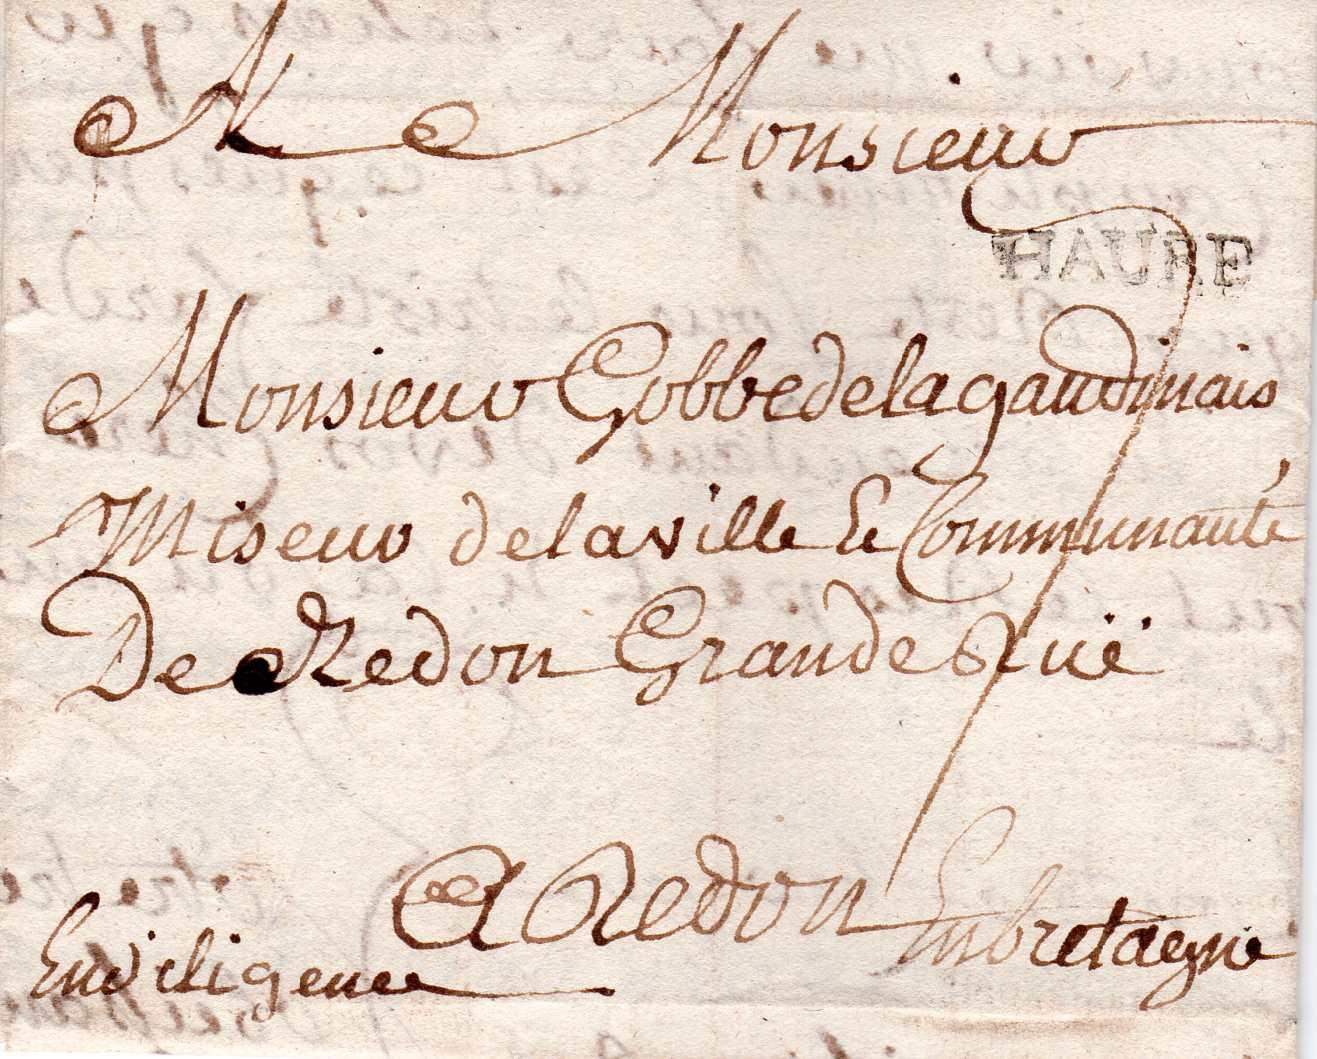 A Monsieur
HAURE
Monsieur Gobbe de la gaudinais
Miseur de la ville Et Communauté
De Redon Grande Ruë
A Redon En bretagne
En diligence